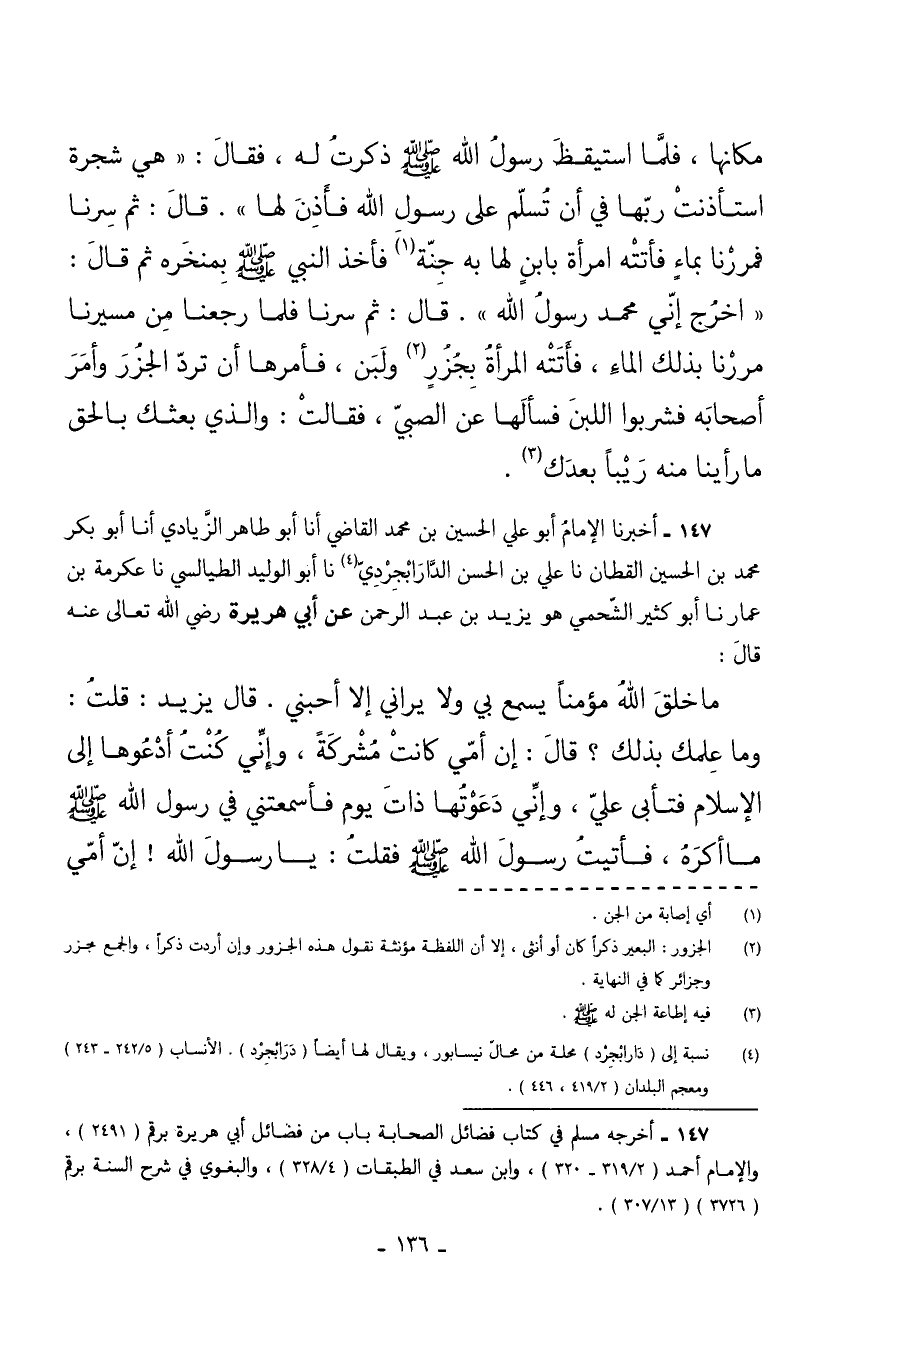 مكانها ، فلمَّا استيقـظَ رسولُ الله ﷺ ذكرتُ لـه ، فقـالَ : « هي شجرة
استـأذنتْ ربّهـا في أن تُسلّم على رسـولِ الله فـأَذِنَ لهـا » . قـالَ : ثم سِرنـا
فمررْنا بماءٍ فأتتْه امرأة بابنٍ لها به جِنّة(١) فأخذ النبي ﷺ بِمنخَره ثم قـالَ :
« اخرُج إنّي محمـد رسولُ الله » . قـال : ثم سرنـا فلمـا رجعنـا مِن مسيرنـا
مررْنا بذلك الماء ، فأَتَتْه المرأةُ بِجُزُرٍ(٢) ولَبَن ، فـأمرهـا أن تردّ الجُزُرَ وأمَرَ
أصحابَه فشربوا اللبنَ فسألَهـا عن الصبيّ ، فقـالتْ : والـذي بعثـك بـالحق
مارأينا منه رَيْباً بعدَك(٣) .
١٤٧ ـ أخبرنا الإمامُ أبو علي الحسين بن محمد القاضي أنا أبو طاهر الزَّيادي أنـا أبو بكر
محمد بن الحسين القطان نا علي بن الحسن الدَّارَابْجِرْدِيّ(٤) نا أبو الوليد الطيالسي نا عكرمة بن
عمار نـا أبو كثير الشّحمي هو يزيـد بن عبـد الرحمن عن أبي هريرة رضي الله تعـالى عنـه
قالَ :
ماخلقَ اللهُ مؤمناً يسمع بي ولا يراني إلا أحبني . قال يزيـد : قلتُ :
وما عِلمك بذلك ؟ قالَ : إن أمّي كانتْ مُشْركَةً ، وإنِّي كُنْتُ أدْعُوهـا إلى
الإسلام فتـأبى عليّ ، وإنِّي دَعَوْتُهـا ذاتَ يوم فـأسمعتني في رسول الله ﷺ
مـاأكرَهُ ، فـأتيتُ رسـولَ الله ﷺ فقلتُ : يـارسـولَ الله ! إنّ أمّي
(١) أي إصابة من الجن .
(٢) الجزور : البعير ذكراً كان أو أنثى ، إلا أن اللفظـة مؤنثـة نقـول هـذه الجـزور وإن أردت ذكراً ، والجمع جزر
وجزائر كما في النهاية .
(٣) فيه إطاعة الجن له ﷺ .
(٤) نسبة إلى ( دَارابْجِرْد ) محلـة من محـالّ نيسـابور ، ويقـال لهـا أيضـاً ( دَرَابْجِرْد ) . الأنسـاب ( ٢٤٢/٥ ـ ٢٤٣ )
ومعجم البلدان ( ٤١٩/٢ ، ٤٤٦ ) .
١٤٧ ـ أخرجه مسلم في كتاب فضائل الصحابـة بـاب من فضـائل أبي هريرة برقم ( ٢٤٩١ ) ،
والإمـام أحمـد ( ٣١٩/٢ ـ ٣٢٠ ) ، وابن سعـد في الطبقـات ( ٣٢٨/٤ ) ، والبغوي في شرح السنـة برقم
( ٣٧٢٦ ) ( ٣٠٧/١٣ ) .
ـ ١٣٦ ـ